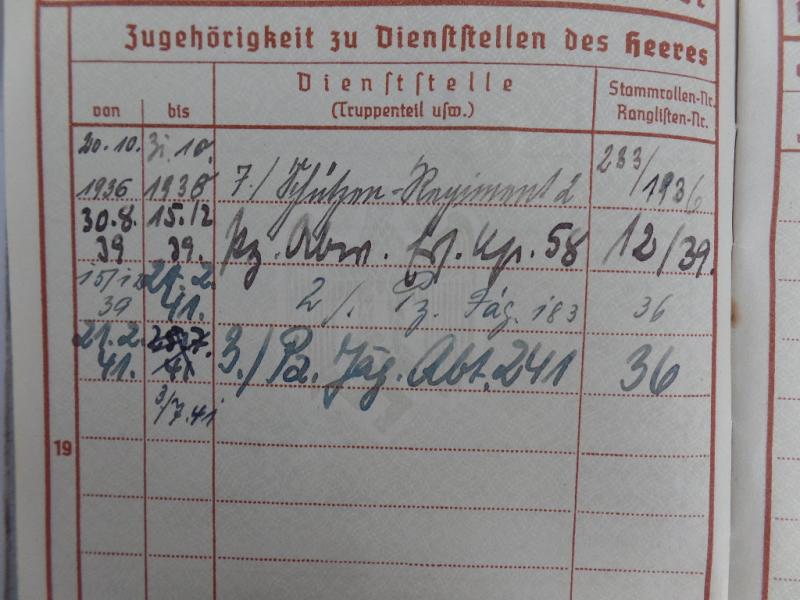 Zugehörigkeit zu Dienststellen des Heeres
von
bis
Dienststelle
(Truppenteil usw.)
Stammrollen-Nr.
Ranglisten-Nr.
20.10. 31.10.
1936 1938 7./ Schützen-Regiment 2 233/1936
30.8. 15.12
39 39. Pz. Abw. Ers. Kp. 58 12/39.
15/12 21.2.
39 41. 2/. Pz. Jäg. 183 36
21.2.
41. 41 3./ Pz. Jäg. Abt. 241 36
3/7.41
19